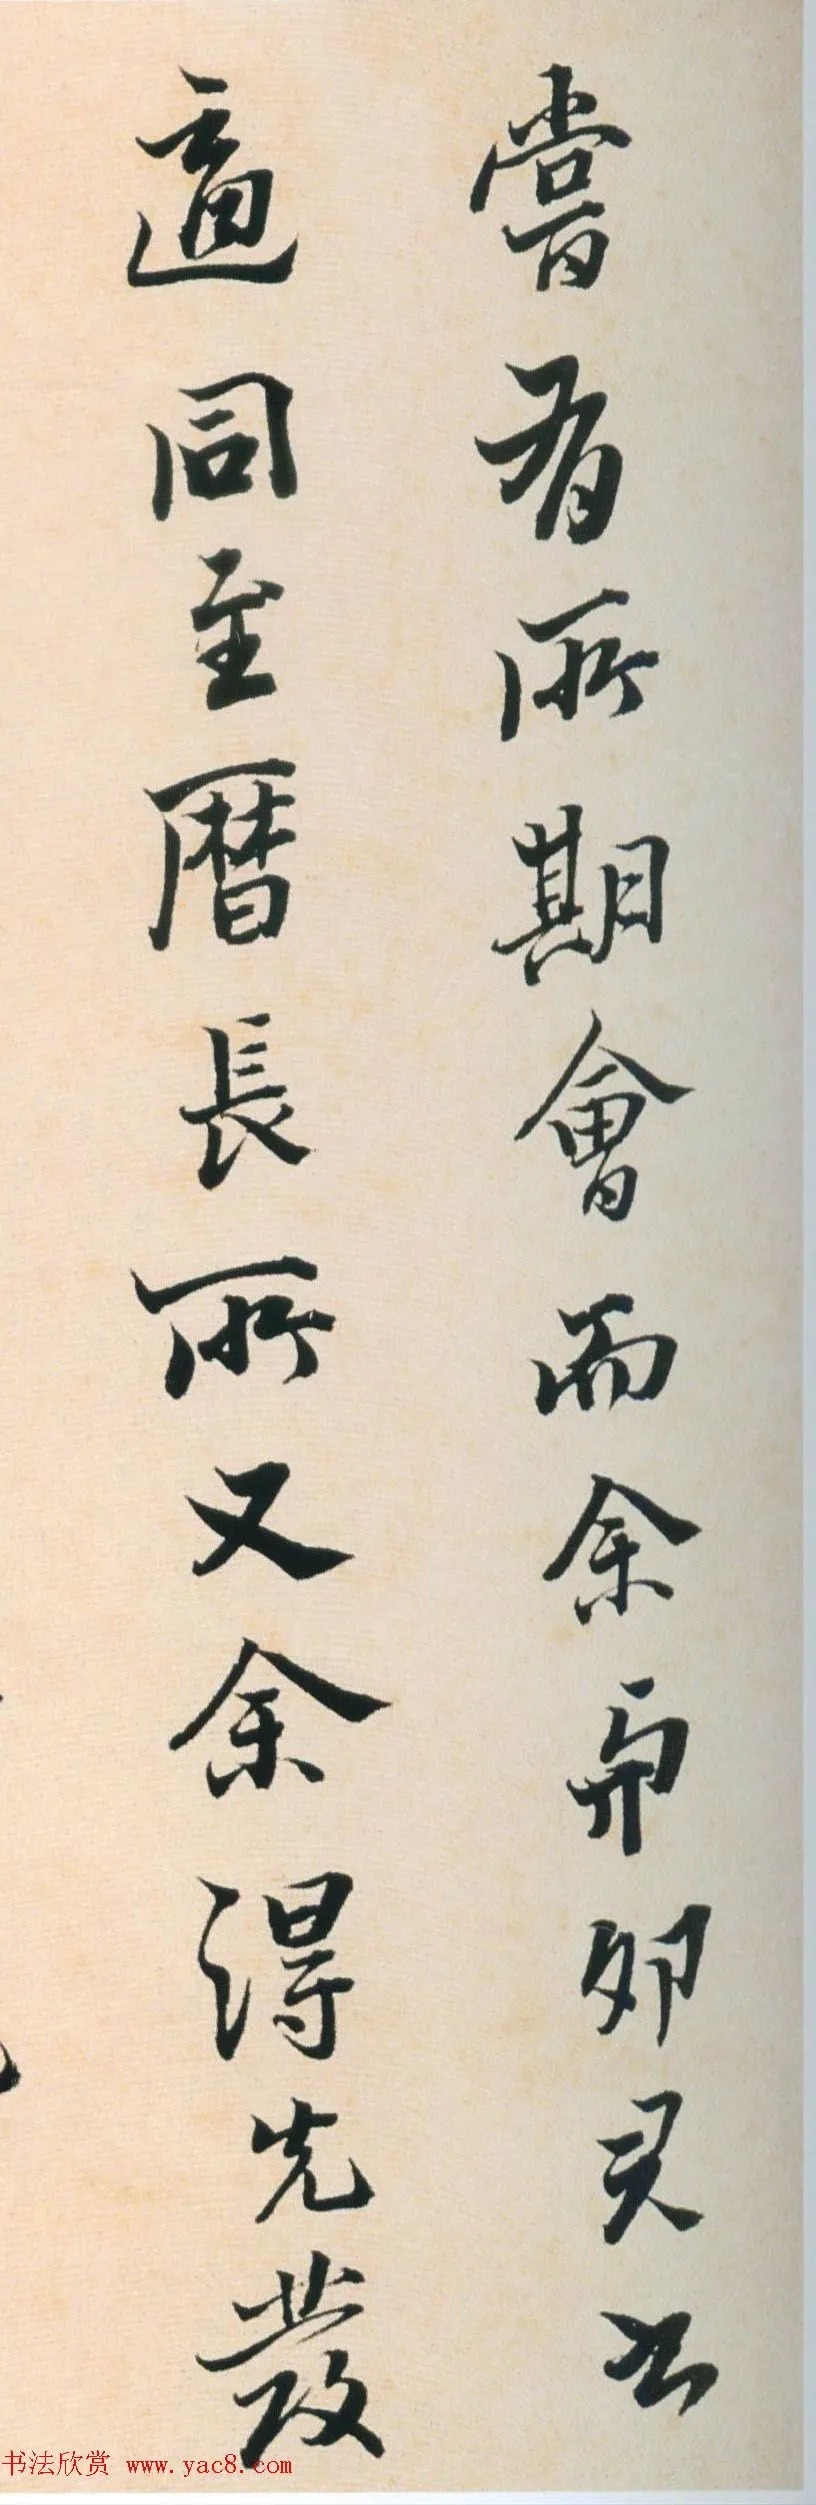 嘗有所期會而余与邜君上
適同至曆長所又余得先發
书法欣赏 www.yac8.com